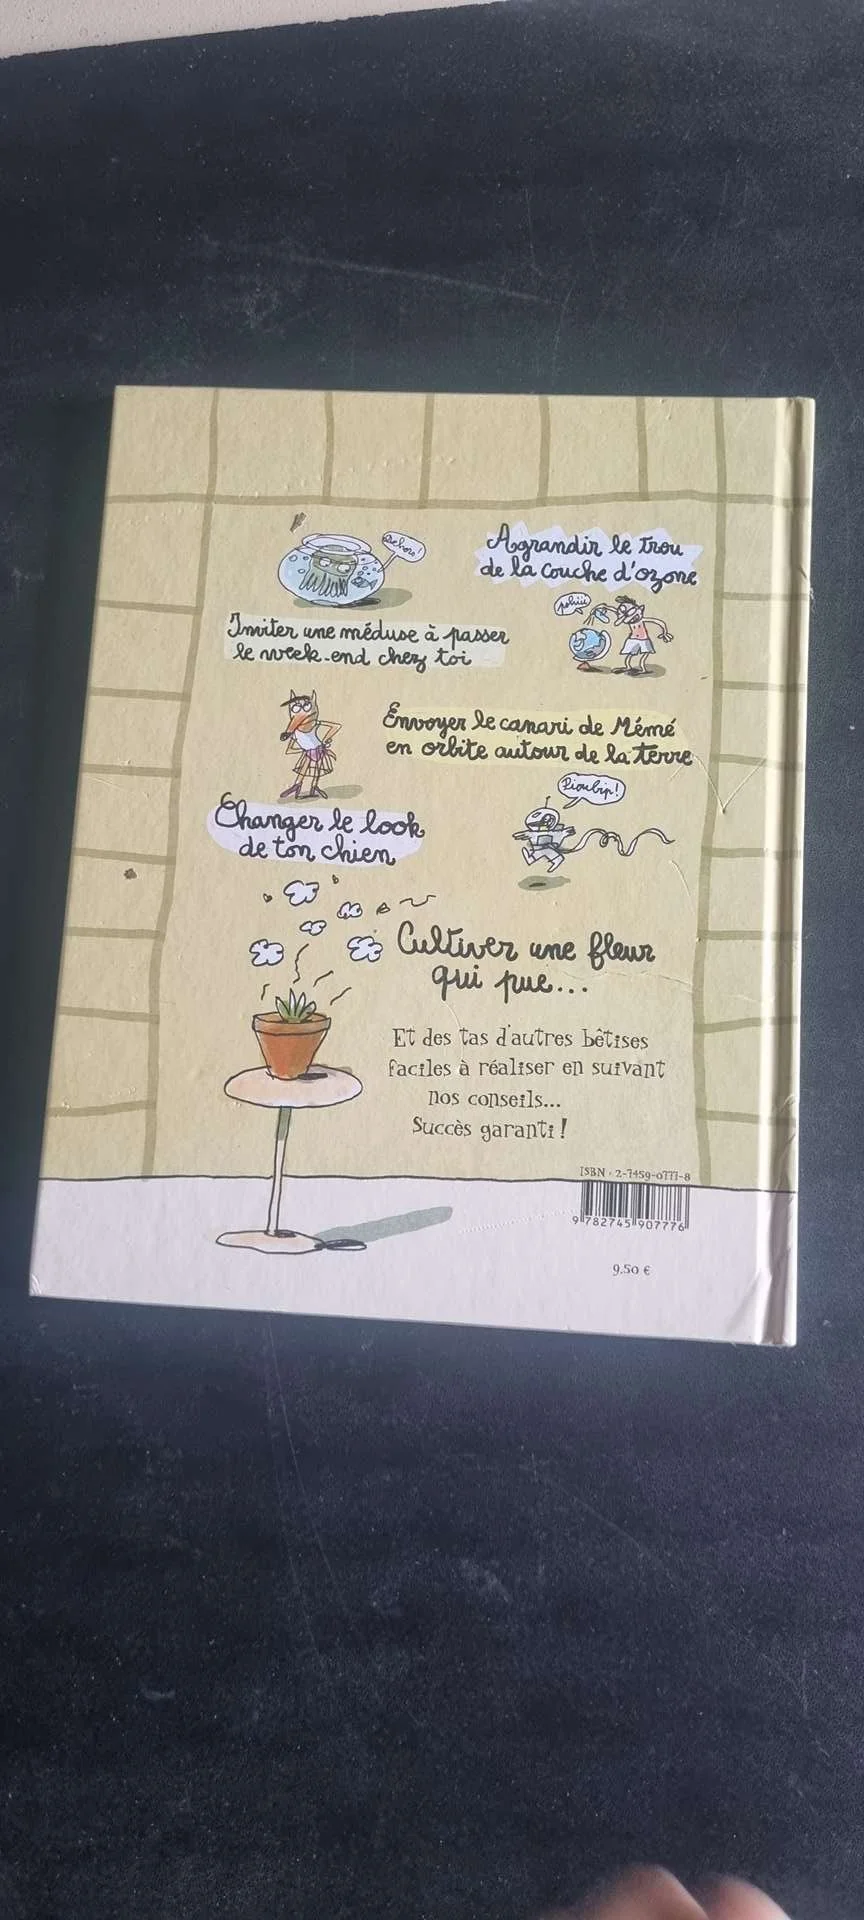 Dehors!
Agrandir le trou
de la couche d'ozone
Inviter une méduse à passer
le week-end chez toi
Envoyer le canari de Mémé
en orbite autour de la terre
Pioubip!
Changer le look
de ton chien
Cultiver une fleur
qui pue...
Et des tas d'autres bêtises
faciles à réaliser en suivant
nos conseils...
Succès garanti !
ISBN : 2-7459-0777-8
9 782745 907776
9.50 €